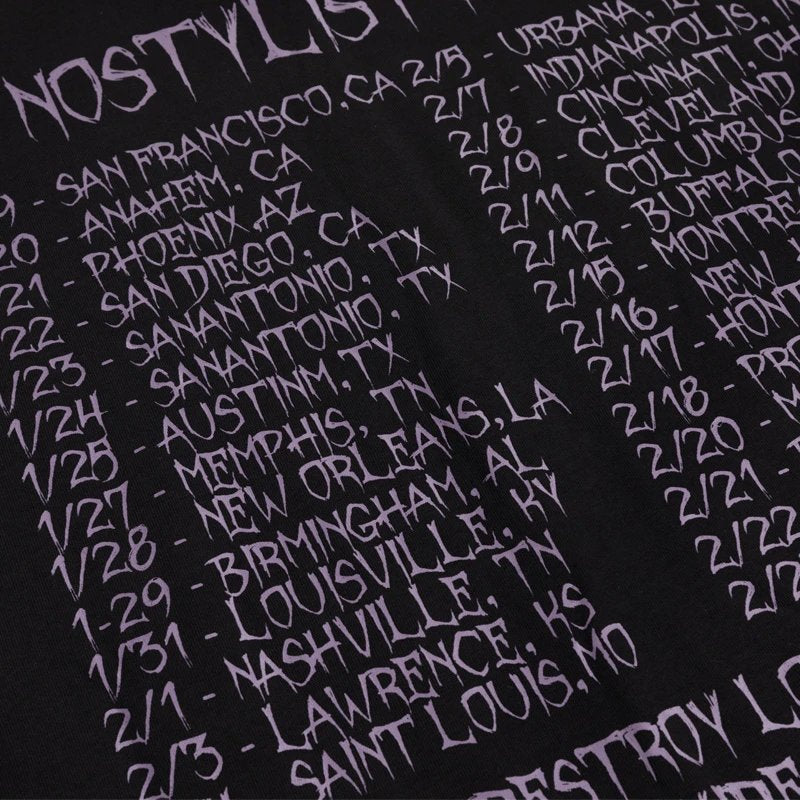 NOSTYLIST
9 - SAN FRANCISCO,CA
20 - ANAHEM, CA
21 - PHOENIX,AZ
22 - SAN DIEGO, CA
1/23 - SANANTONIO, TX
1/24 - SANANTONIO, TX
1/25 - AUSTINM,TX
1/27 - MEMPHIS, TN
1/28 - NEW ORLEANS,LA
1-29 - BIRMINGHAM, AL
1/31 - LOUISVILLE, KY
2/1 - NASHVILLE, TN
2/3 - LAWRENCE, KS
SAINT LOUIS,MO
2/5 - URBANA, IL
2/7 - INDIANAPOLIS,
2/8 - CINCNNATI, OH
2/9 - CLEVELAND
2/11 - COLUMBUS
2/12 - BUFFALO
2/15 - MONTRE
2/16 - NEW
2/17 - HONT
2/18 - PRO
2/20 - M
2/21 -
2/22
2/2
DESTROY LO